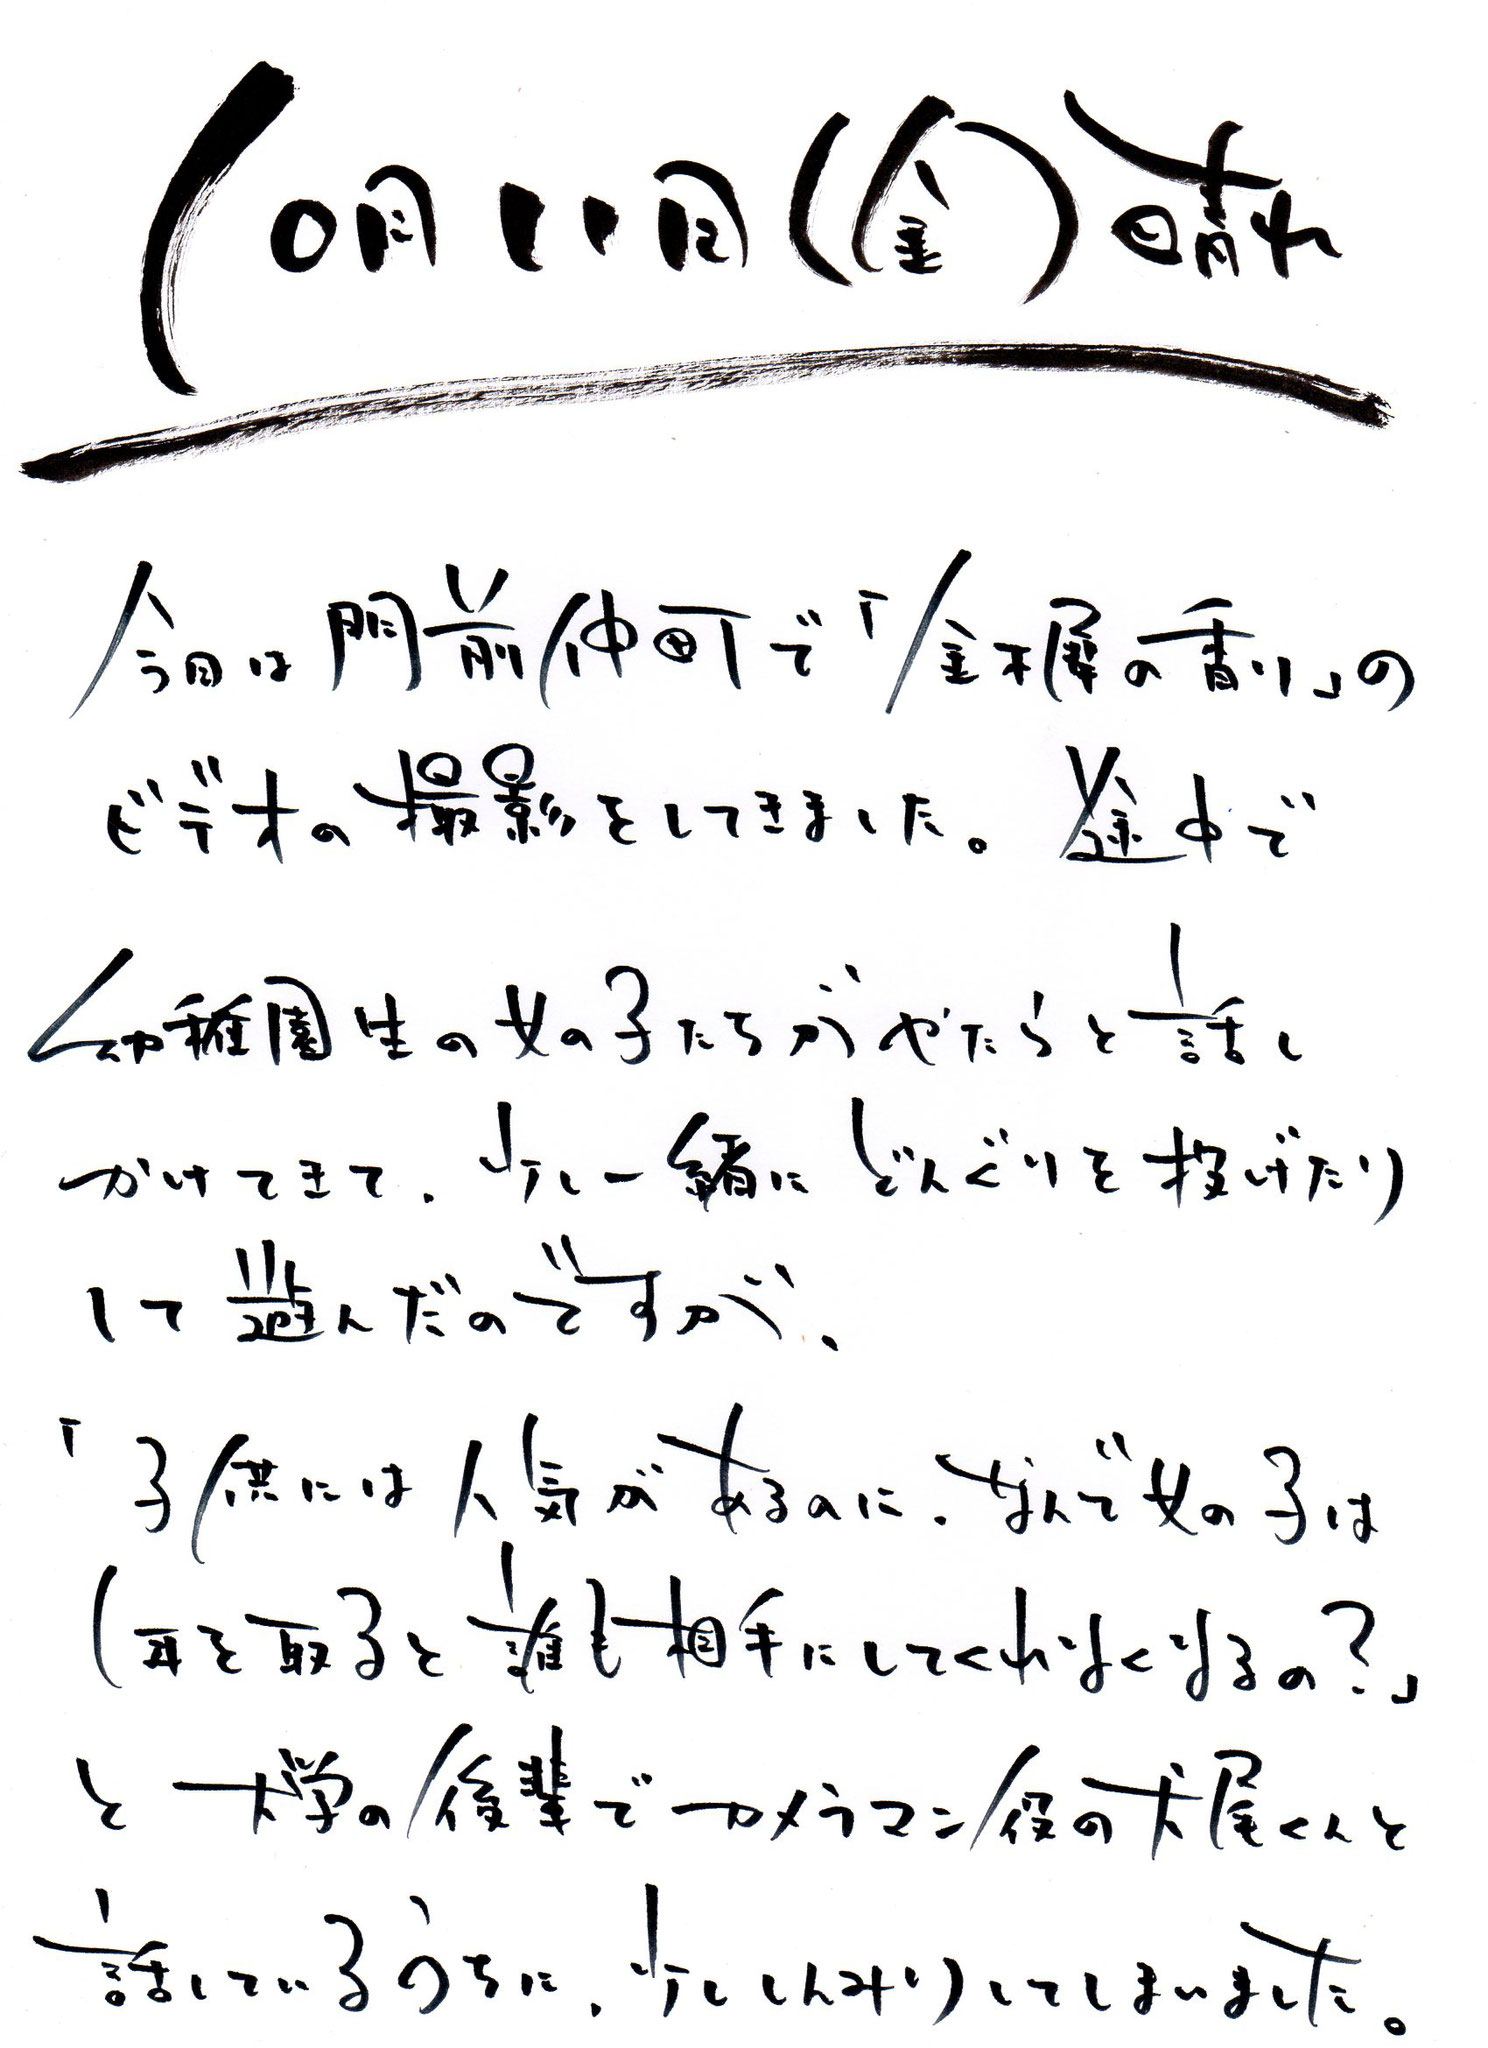 10月11日(金)晴れ
今日は門前仲町で「金木犀の香り」の
ビデオの撮影をしてきました。途中で
幼稚園生の女の子たちがやたらと話し
かけてきて、少し一緒にどんぐりを投げたり
して遊んだのですが、
「子供には人気があるのに、なんで女の子は
(年を取ると誰も相手にしてくれなくなるの?」
と大学の後輩でカメラマン役の犬尾くんと
話しているうちに、少ししんみりしてしまいました。